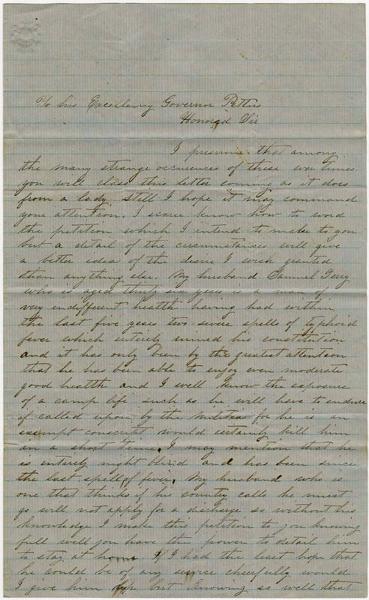 To his Excellency Governor Pettus
Honored Sir
I presume that among
the many strange occurences of these war times
you will class this letter coming as it does
from a lady. Still I hope it may command
your attention. I scarce know how to word
the petition which I intend to make to you
but a detail of the circumstances will give
a better idea of the desire I wish granted
than anything else. My husband Samuel
who is aged thirty years is a man of
very indifferent health having had within
the last five years two severe spells of typhoid
fever which entirely ruined his constitution
and it has only been by the greatest attention
that he has been able to enjoy even moderate
good health and I well know the exposure
of a camp life such as he will have to endure
if called upon by the militia for he is an
exempt conscript would certainly kill him
in a short time. I may mention that he
is entirely night blind and has been since
the last spell of fever. My husband who is
one that thinks if his country calls he must
go will not apply for a discharge so without his
knowledge I make this petition to you knowing
full well you have the power to detail him
to stay at home If I had the least hope that
he would be of any service cheerfully would
I give him up but knowing so well that